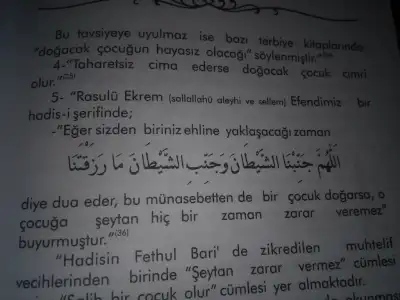 Bu tavsiyeye uyulmaz ise bazı terbiye kitaplarında
"doğacak çocuğun hayasız olacağı" söylenmiştir."
4-"Taharetsiz cima ederse doğacak çocuk cimri
olur."
5- "Rasulü Ekrem (sallallahü aleyhi ve sellem) Efendimiz bir
hadis-i şerifinde;
-"Eğer sizden biriniz ehline yaklaşacağı zaman
اَللّٰهُمَّ جَنِّبْنَا الشَّيْطَانَ وَجَنِّبِ الشَّيْطَانَ مَا رَزَقْتَنَا
diye dua eder, bu münasebetten de bir çocuk doğarsa, o
çocuğa şeytan hiç bir zaman zarar veremez"
buyurmuştur."(36)
"Hadisin Fethul Bari' de zikredilen muhtelif
vecihlerinden birinde "Şeytan zarar vermez" cümlesi
"Salih bir çocuk olur" cümlesi yer almaktadır.